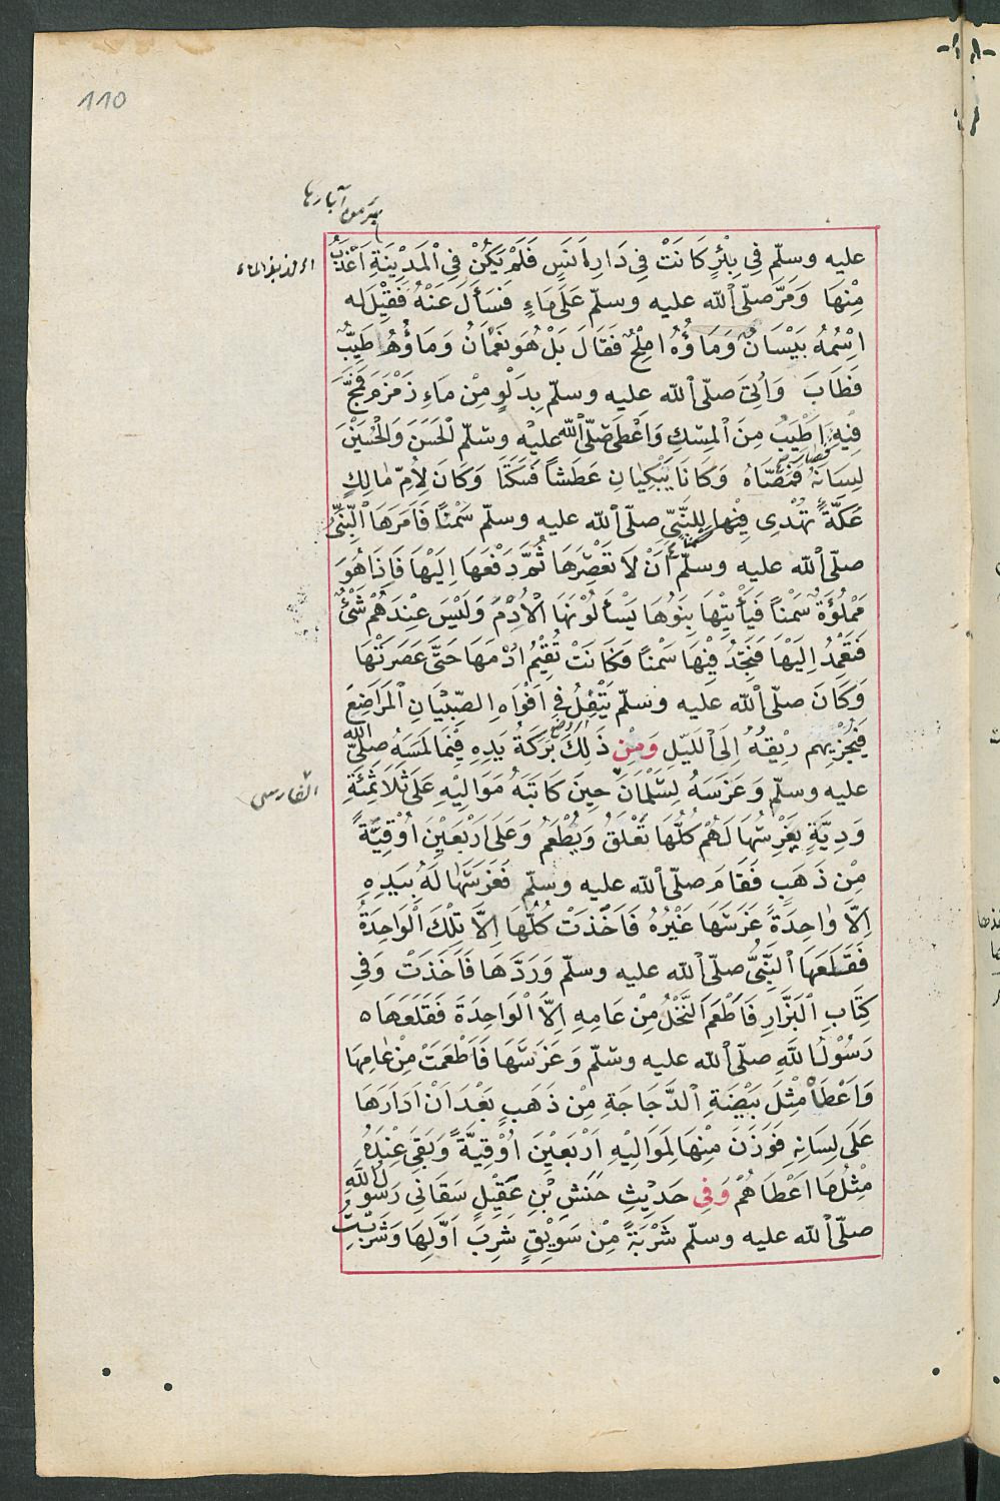 110
بئر من آبارها
عليه وسلّم فِي بِئْرٍ كَانَتْ فِي دَارِ اَنَسٍ فَلَمْ يَكُنْ فِي الْمَدِيْنَةِ اَعْذَبُ
مِنْهَا وَمَرَّ صلّى الله عليه وسلّم عَلَى مَاءٍ فَسَأَلَ عَنْهُ فَقِيْلَ لِه
اسْمُهُ بَيْسَانُ وَمَاؤُهُ مِلْحٌ فَقَالَ بَلْ هُوَ نَعْمَانُ وَمَاؤُهَا طَيِّبٌ
فَطَابَ وَاُتِىَ صلّى الله عليه وسلّم بِدَلْوٍ مِنْ مَاءِ زَمْزَمَ فَمَجَّ
فِيْهِ اَطْيَبُ مِنَ الْمِسْكِ وَاَعْطَى صَلّى الله عليه وسلّم الْحَسَنَ وَالْحُسَيْنَ
لِسَانَهُ فَمَصَّاهُ وَكَانَا يَبْكِيَانِ عَطَشًا فَسَكَتَا وَكَانَ لِأُمِّ مَالِكٍ
عُكَّةٌ تُهْدِى فِيْهَا لِلنَّبِيِّ صلّى الله عليه وسلّم سَمْنًا فَاَمَرَهَا النَّبِىُّ
صلّى الله عليه وسلّم أَنْ لَا تَعْصِرَهَا ثُمَّ دَفَعَهَا اِلَيْهَا فَاِذَا هُوَ
مَمْلُوَّةٌ سَمْنًا فَيَأْتِيْهَا بَنُوهَا يَسْأَلُوْنَهَا الْاُدْمَ وَلَيْسَ عِنْدَهُمْ شَيْئٌ
فَتَعْمِدُ اِلَيْهَا فَتَجِدُ فِيْهَا سَمْنًا فَكَانَتْ تُقِيْمُ اُدْمَهَا حَتَّى عَصَرَتْهَا
وَكَانَ صلّى الله عليه وسلّم يَتْفِلُ فِي اَفْوَاهِ الصِّبْيَانِ الْمَرَاضِعَ
فَيُجْزِيْهِم رِيْقُهُ اِلَى اللَّيْلِ وَمِنْ ذَلِكَ بَرَكَةُ يَدِهِ فِيْمَا لَمَسَهُ صلّى الله
الفارسى
عليه وسلّم وَغَرَسَهُ لِسَلْمَانَ حِينَ كَاتَبَهُ مَوَالِيْهِ عَلَى ثَلَاثِمِئَةِ
وَدِيَّةٍ يَغْرِسُهَا لَهُمْ كُلُّهَا تَعْلَقُ وَيُطْعَمُ وَعَلَى اَرْبَعِيْنَ اُوْقِيَّةً
مِنْ ذَهَبٍ فَقَامَ صلّى الله عليه وسلّم فَغَرَسَهَا لَهُ بِيَدِهِ
اِلَّا وَاحِدَةً غَرَسَهَا غَيْرُهُ فَاَخَذَتْ كُلُّهَا اِلَّا تِلْكَ الْوَاحِدَةَ
فَقَلَعَهَا النَّبِىُّ صلّى الله عليه وسلّم وَرَدَّهَا فَاَخَذَتْ وَفِي
كِتَابِ الْبَزَّارِ فَاَطْعَمَ النَّخْلُ مِنْ عَامِهِ اِلَّا الْوَاحِدَةَ فَقَلَعَهَا
رَسُوْلُ اللّٰهِ صلّى الله عليه وسلّم وَغَرَسَهَا فَاَطْعَمَتْ مِنْ عَامِهَا
وَاَعْطَاهُ مِثْلَ بَيْضَةِ الدَّجَاجَةِ مِنْ ذَهَبٍ بَعْدَ اَنْ اَدَارَهَا
عَلَى لِسَانِهِ فَوَزَنَ مِنْهَا لِمَوَالِيْهِ اَرْبَعِيْنَ اُوْقِيَّةً وَبَقِىَ عِنْدَهُ
مِثْلُ مَا اَعْطَاهُمْ وَفِي حَدِيْثِ حَنَشِ بْنِ عَقِيْلٍ سَقَانِى رَسُولُ اللّٰهِ
صلّى الله عليه وسلّم شَرْبَةً مِنْ سَوِيْقٍ شَرِبَ اَوَّلَهَا وَشَرِبْتُ